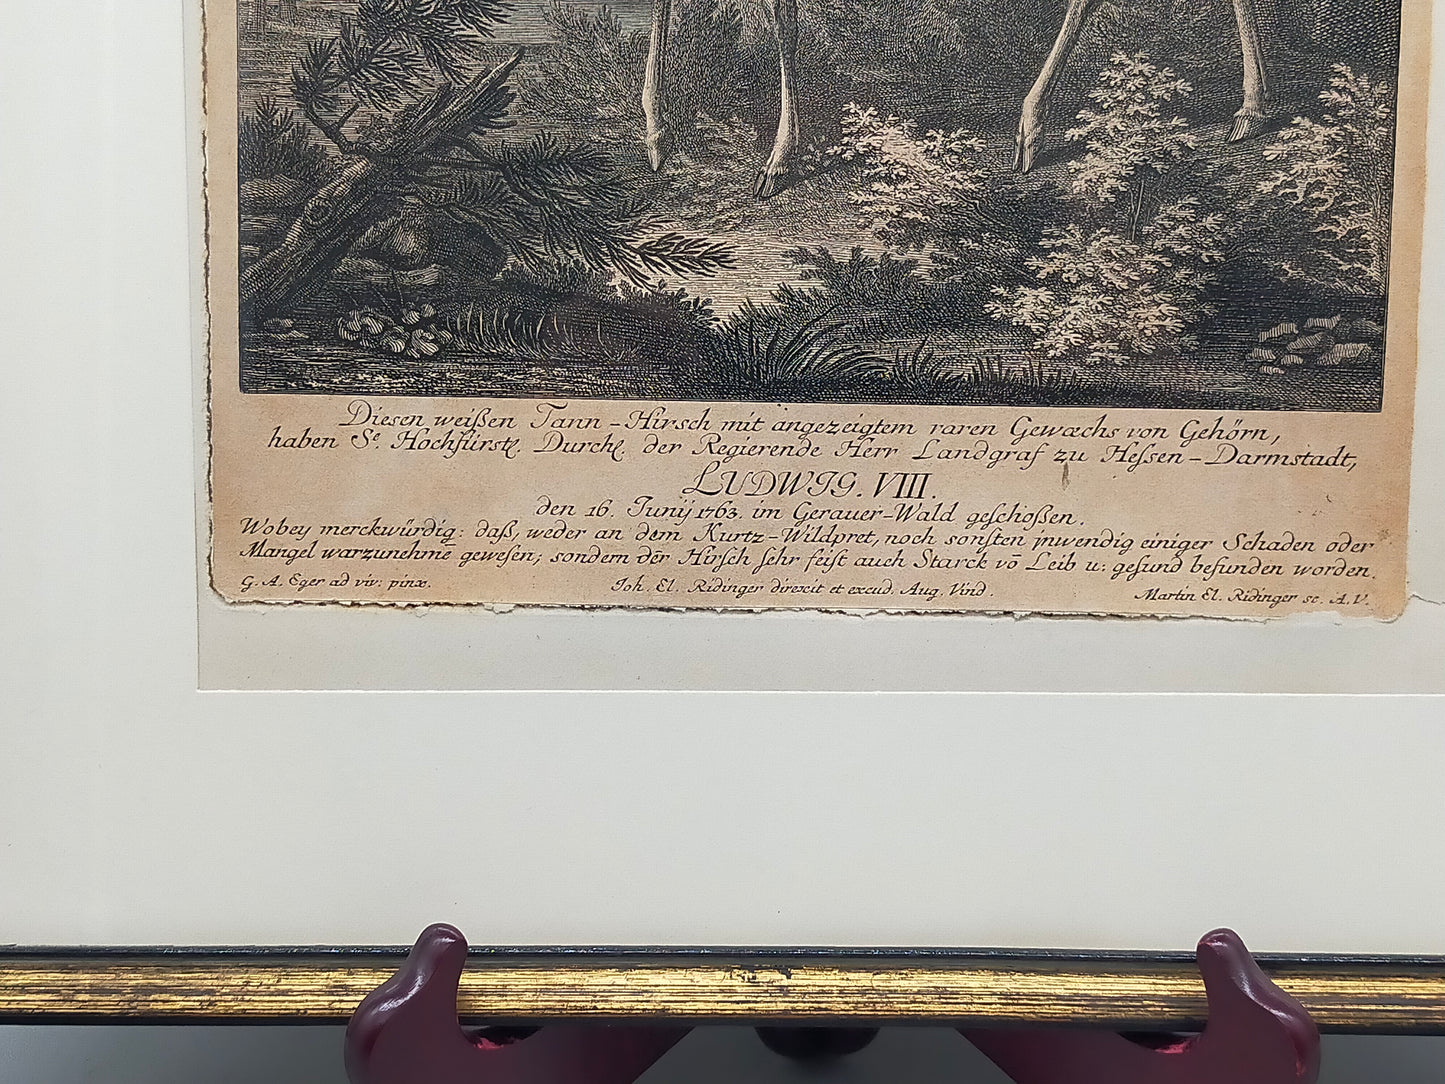 Diesen weißen Tann-Hirsch mit angezeigtem raren Gewæchs von Gehörn,
haben Sᵉ Hochfürstl. Durchl. der Regierende Herr Landgraf zu Heſsen-Darmstadt,
LUDWIG. VIII.
den 16. Junÿ 1763. im Gerauer-Wald geſchoßen.
Wobey merckwürdig: daß, weder an dem Kurtz-Wildpret, noch sonſten inwendig einiger Schaden oder
Mangel warzunehmē gewesen; sondern der Hirſch ſehr feiſt auch Starck vō Leib u: geſund befunden worden.
G. A. Eger ad viv: pinx. Joh. El. Ridinger direxit et excud. Aug. Vind. Martin El. Ridinger sc. A.V.